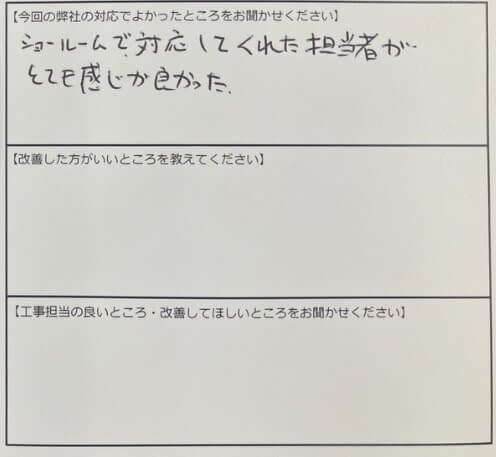 【今回の弊社の対応でよかったところをお聞かせください】
ショールームで対応してくれた担当者が
とても感じが良かった.
【改善した方がいいところを教えてください】
【工事担当の良いところ・改善してほしいところをお聞かせください】